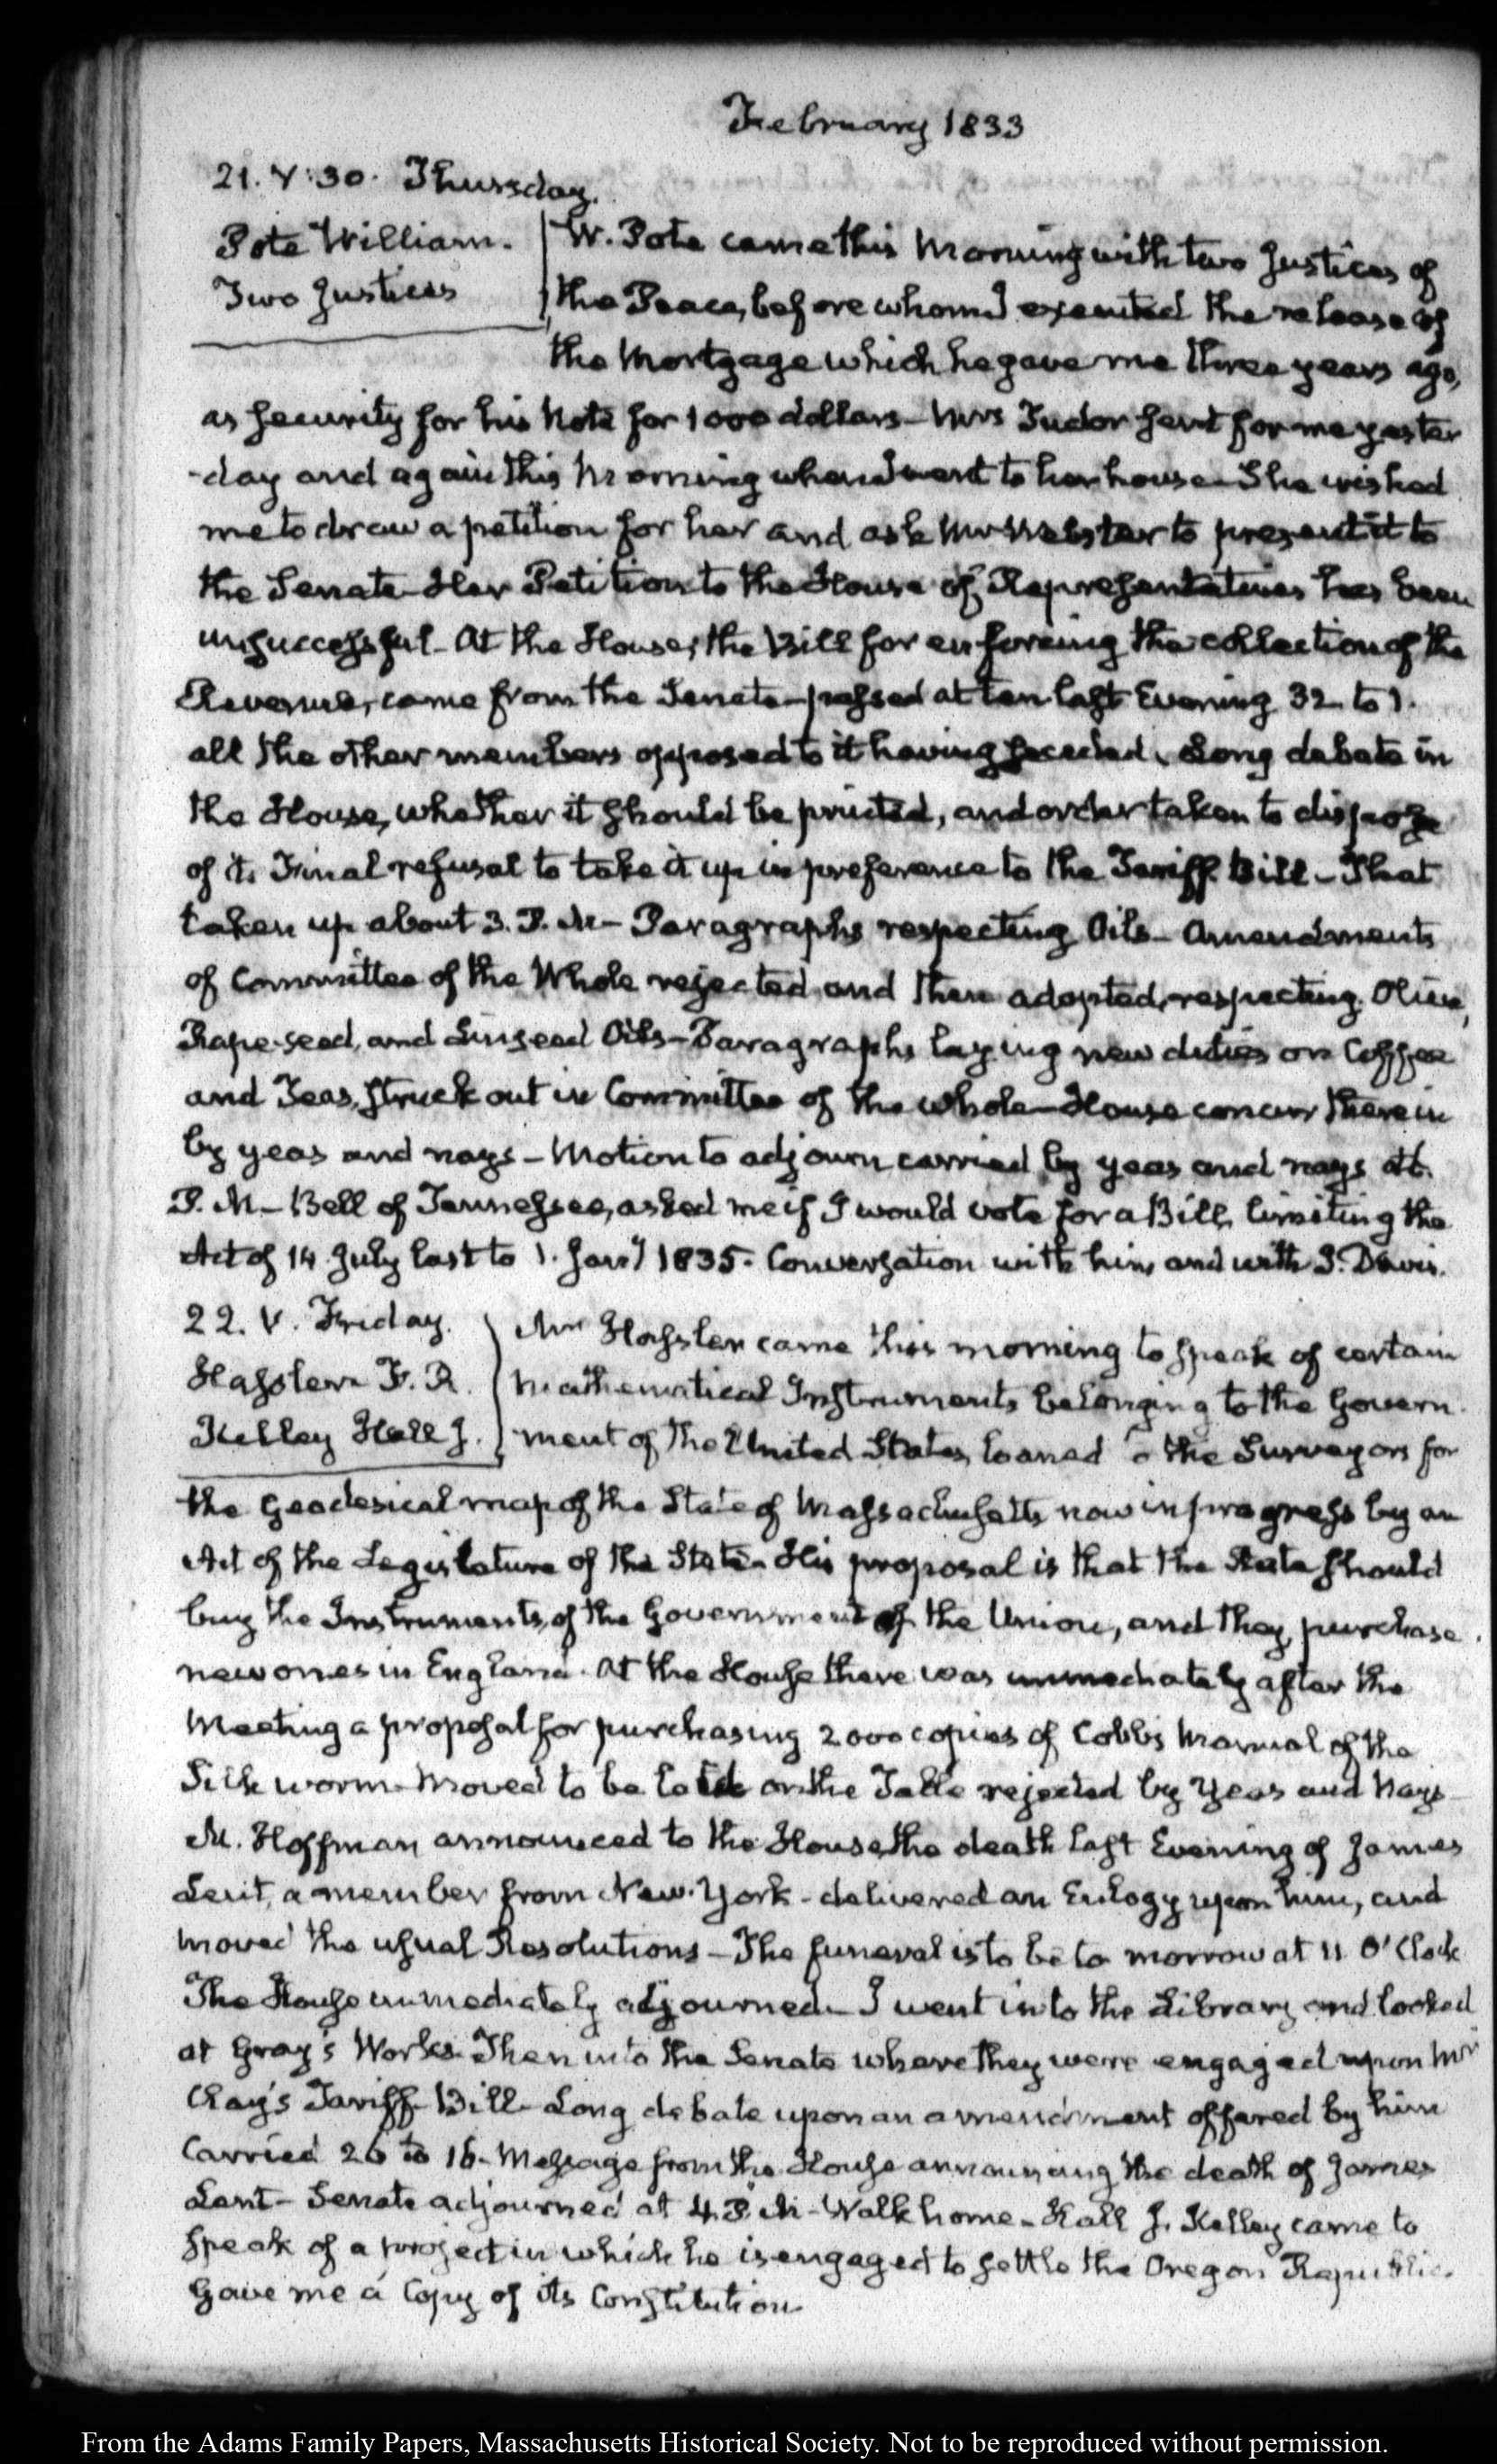 February 1833
21. V:30. Thursday.
Pote William.
Two Justices
W. Pote came this Morning with two Justices of
the Peace, before whom I executed the release of
the Mortgage which he gave me three years ago,
as security for his Note for 1000 dollars – Mrs Tudor sent for me yester
-day and again this Morning when I went to her house – She wished
me to draw a petition for her and ask Mr Webster to present it to
the Senate – Her Petition to the House of Representatives has been
unsuccessful – At the House, the Bill for enforcing the collection of the
Revenue, came from the Senate – passed at ten last Evening 32 to 1.
all the other members opposed to it having seceded. Long debate in
the House, whether it should be printed, and order taken to dispose
of it. Final refusal to take it up in preference to the Tariff Bill – That
taken up about 3. P. M – Paragraphs respecting Oils – Amendments
of Committee of the Whole rejected and then adopted, respecting Olive,
Rape-seed, and Linseed Oils – Paragraphs laying new duties on Coffee
and Teas, struck out in Committee of the whole – House concur therein
by yeas and nays – Motion to adjourn carried by yeas and nays at
P. M – Bell of Tennessee, asked me if I would vote for a Bill, limiting the
Act of 14 July last to 1. Jany 1835. Conversation with him and with J. Davis.
22. V. Friday.
Hassler F. R.
Kelley Hall J.
Mr Hassler came this morning to speak of certain
mathematical Instruments belonging to the Govern
ment of the United States, loaned to the Surveyors for
the Geodesical map of the State of Massachusetts now in progress by an
Act of the Legislature of the State – His proposal is that the State should
buy the Instruments, of the Government of the Union, and they purchase
new ones in England. At the House there was immediately after the
Meeting a proposal for purchasing 2000 copies of Cobb's Manual of the
Silk worm – Moved to be laid on the Table rejected by Yeas and Nays –
M. Hoffman announced to the House, the death last Evening of James
Lent, a member from New-York – delivered an Eulogy upon him, and
moved the usual Resolutions – The funeral is to be to morrow at 11 O'Clock
The House immediately adjourned – I went into the Library and looked
at Gray's Works. Then into the Senate where they were engaged upon Mr
Clay's Tariff Bill – Long debate upon an amendment offered by him
Carried 26 to 16 – Message from the House announcing the death of James
Lent – Senate adjourned at 4. P. M – Walk home – Hall J. Kelley came to
speak of a project in which he is engaged to settle the Oregon Republic.
Gave me a Copy of its Constitution
From the Adams Family Papers, Massachusetts Historical Society. Not to be reproduced without permission.